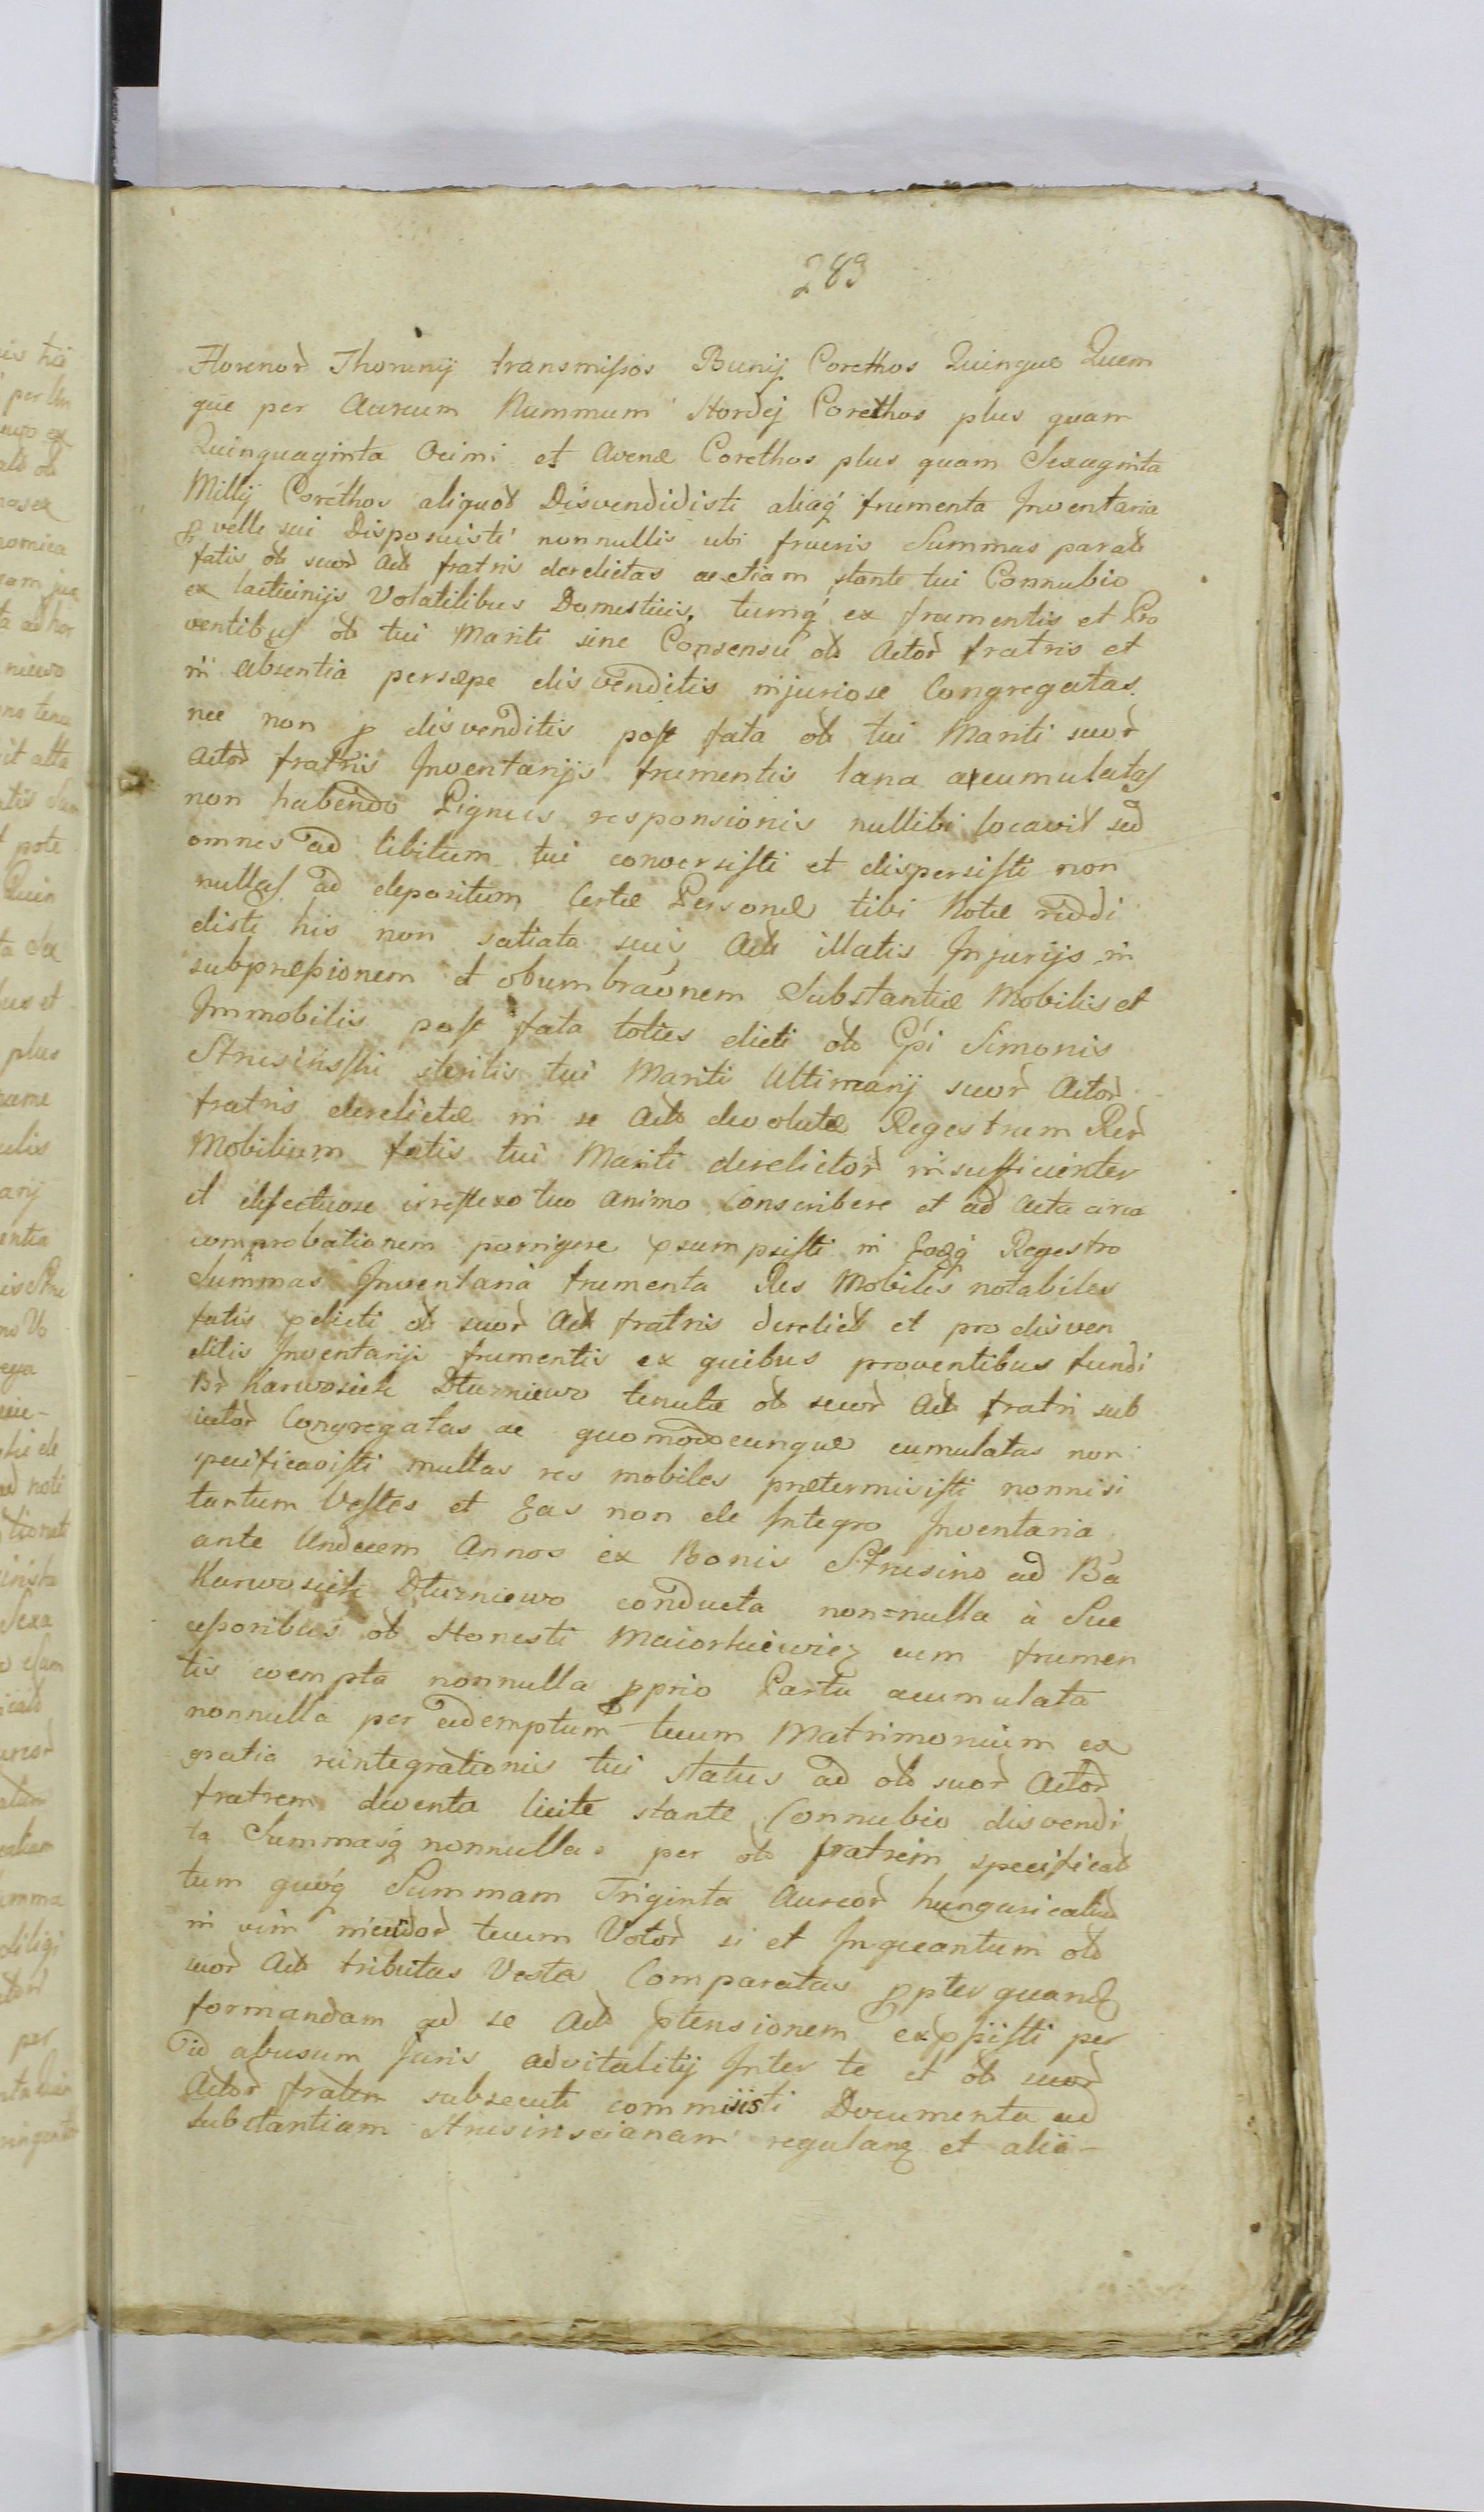 283
Florenor Thorunij transmissos Bunij Corethos Quinque Quem
que per Aureum Nummum Hordej Corethos plus quam
Quinquaginta Ocimi et Avenæ Corethos plus quam Sexaginta
Millij Corethos aliquot Disvendidisti aliaq frumenta Inventaria
p velle sui Disposuisti nonnullis ubi fueris Summas parat
fatis ob suor Act fratris derelictas ac etiam stante tui Connubio
ex lacticinijs Volatilibus Domesticis, tumq ex frumentis et Pro
ventibus ob tui Mariti sine Consensu ob Actor fratris et
in absentia persæpe disvenditis injuriose Congregatas
nec non p disvenditis post fata ob tui Mariti suor
Actor fratris Inventarijs frumentis lana accumulatas
non habendo Pignus responsionis nullibi locavit sed
omnes ad libitum tui conversisti et dispersisti non
nullas ad depositum Certæ Personæ tibi Notæ reddi
disti his non satiata suis Act illatis Injurijs in
subpressionem et obumbraonem Substantiæ Mobilis et
Immobilis post fata toties dicti ob Gsi Simonis
Strusinski sterilis tui Mariti Ultimarij suor Actor
fratris derelictæ in se Act devolutæ Regestrum Rer
Mobilium fatis tui Mariti derelictor insufficienter
et defectuose irreflexo tuo animo Conscribere et ad Acta circa
comprobationem porrigere psumpsisti in Eoq Regestro
Summas Inventaria frumenta Res Mobiles notabiles
fatis pdicti ob suor Act fratris derelict et pro disven
ditis Inventarijs frumentis ex quibus proventibus fundi
Br Karwosieki Dturniewo tenutæ ob suor Act fratri sub
iector Congregatas ac quomodocunque cumulatas non
specificavisti multas res mobiles prætermisisti nonnisi
tantum Vestes et Eas non de Integro Inventaria
ante Undecem Annos ex Bonis Strusino ad Ba
Karwosieki Dturniewo conducta non=nulla à Suc
cessoribus ob Honesti Maiorkiewicz cum frumen
tis coempta nonnulla pprio Partu acumulata
nonnulla per ademptum tuum Matrimonium ex
gratia reintegrationis tui status ad ob suor Actor
fratrem deventa licite stante Connubio disvendi
ta Summasq nonnullas per ob fratrem specificat
tum quoq Summam Triginta Aureor hungaricaliu
in vim tuum Votor si et Inquantum ob
suor Act tributas Vesta Comparatas ppter quanq
formandam ad se Act ptensionem expsisti per
id abusum Juris advitalitij Inter te et ob suor
Actor fratrem subsecuti commisisti Documenta ad
substantiam Strusinscianam regulanq et alia-